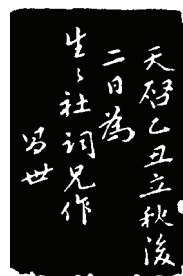 天啟乙丑立秋後
二日為
生生社詞兄作
冯世